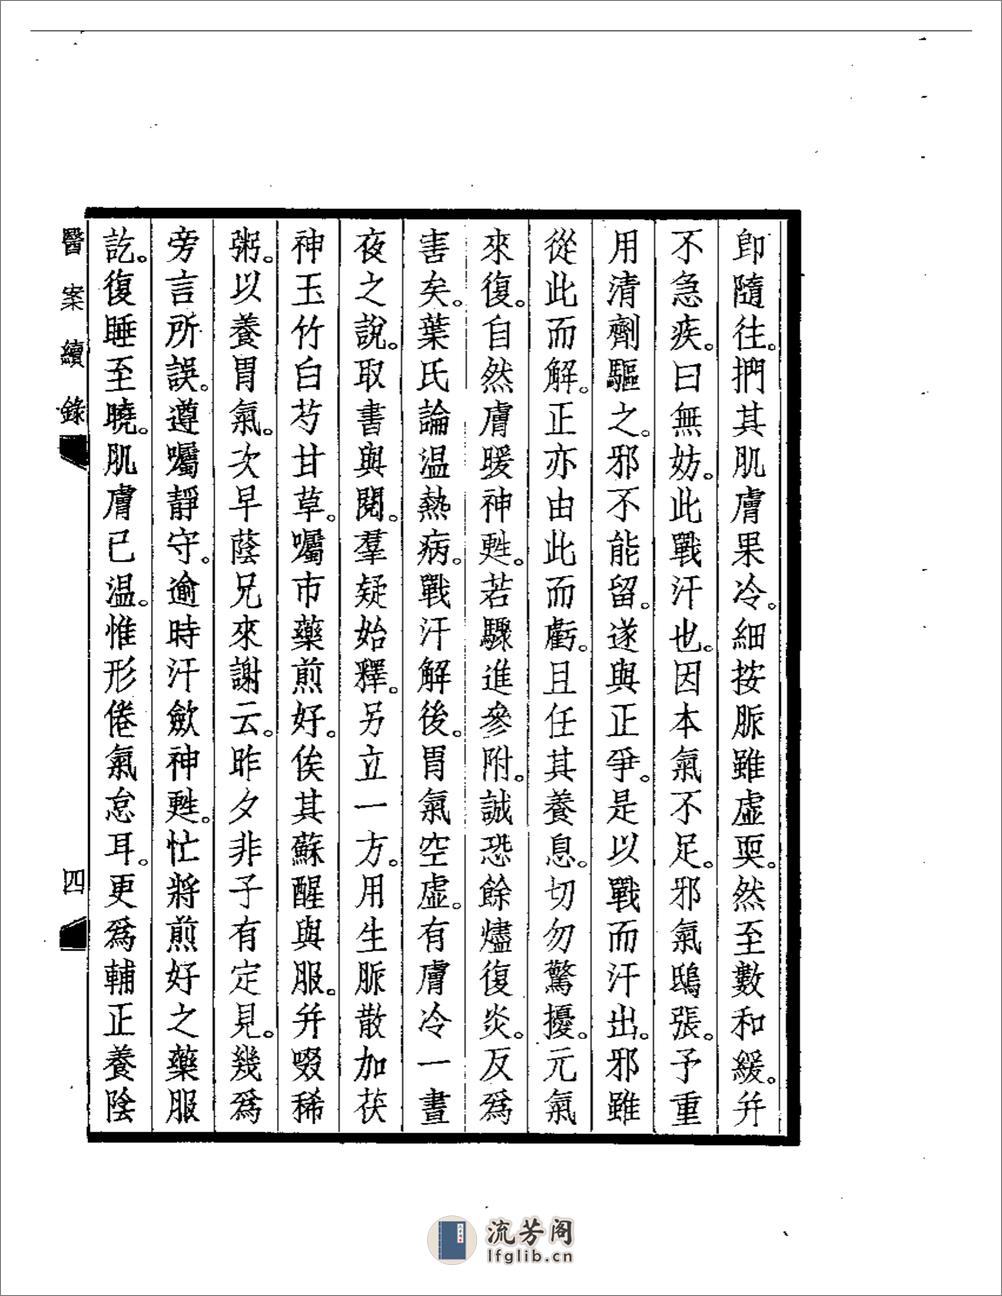 卽隨往。捫其肌膚果冷。細按脈雖虛耎。然至數和緩。幷
不急疾。曰無妨。此戰汗也。因本氣不足。邪氣鴟張。予重
用清劑驅之。邪不能留。遂與正爭。是以戰而汗出。邪雖
從此而解。正亦由此而虧。且任其養息。切勿驚擾。元氣
來復。自然膚暖神甦。若驟進參附。誠恐餘燼復炎。反爲
害矣。葉氏論温熱病。戰汗解後。胃氣空虛。有膚冷一晝
夜之說。取書與閱。羣疑始釋。另立一方。用生脈散加茯
神玉竹白芍甘草。囑市藥煎好。俟其蘇醒與服。幷啜稀
粥。以養胃氣。次早蔭兄來謝云。昨夕非子有定見。幾爲
旁言所誤。遵囑靜守。逾時汗歛神甦。忙將煎好之藥服
訖。復睡至曉。肌膚已温。惟形倦氣怠耳。更爲輔正養陰
醫案續錄
四
流芳阁
lfglib.cn